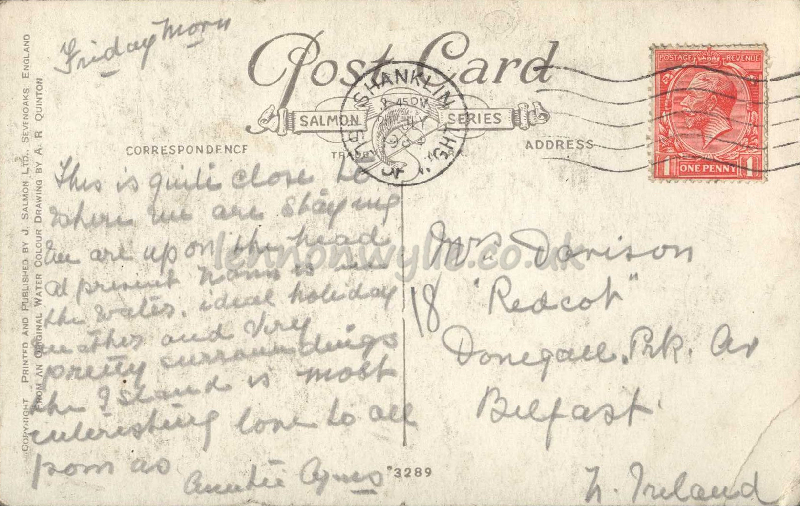 Friday Morn
Post Card
SALMON SERIES
CORRESPONDENCE
ADDRESS
SHANKLIN
8 45 PM
POSTAGE REVENUE
1 ONE PENNY 1
This is quite close to
where we are staying
we are up on the head
at present Nann is in
the water. ideal holiday
weather and very
pretty surroundings
the Island is most
interesting love to all
from as
Auntie Agnes
Mrs Davison
18 "Redcot"
Donegall. Prk. Av
Belfast.
N. Ireland
*3289
COPYRIGHT PRINTED AND PUBLISHED BY J. SALMON LTD., SEVENOAKS, ENGLAND
FROM AN ORIGINAL WATER COLOUR DRAWING BY A. R. QUINTON
lennonwylie.co.uk